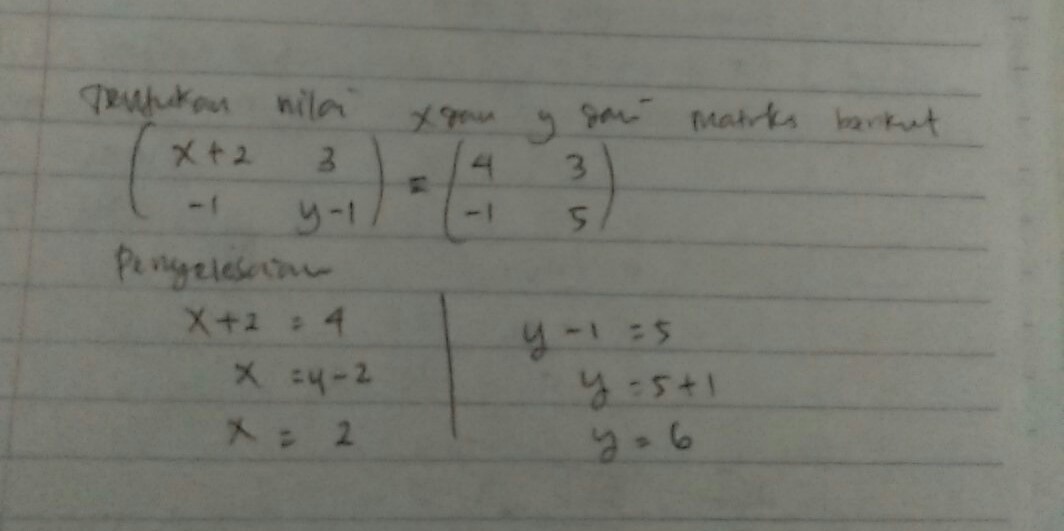 Tentukan nilai x dan y dari matriks berikut
( x+2 3 ) = ( 4 3 )
( -1 y-1 ) ( -1 5 )
Penyelesaian
x+2 = 4 | y-1 = 5
x = 4-2 | y = 5+1
x = 2 | y = 6